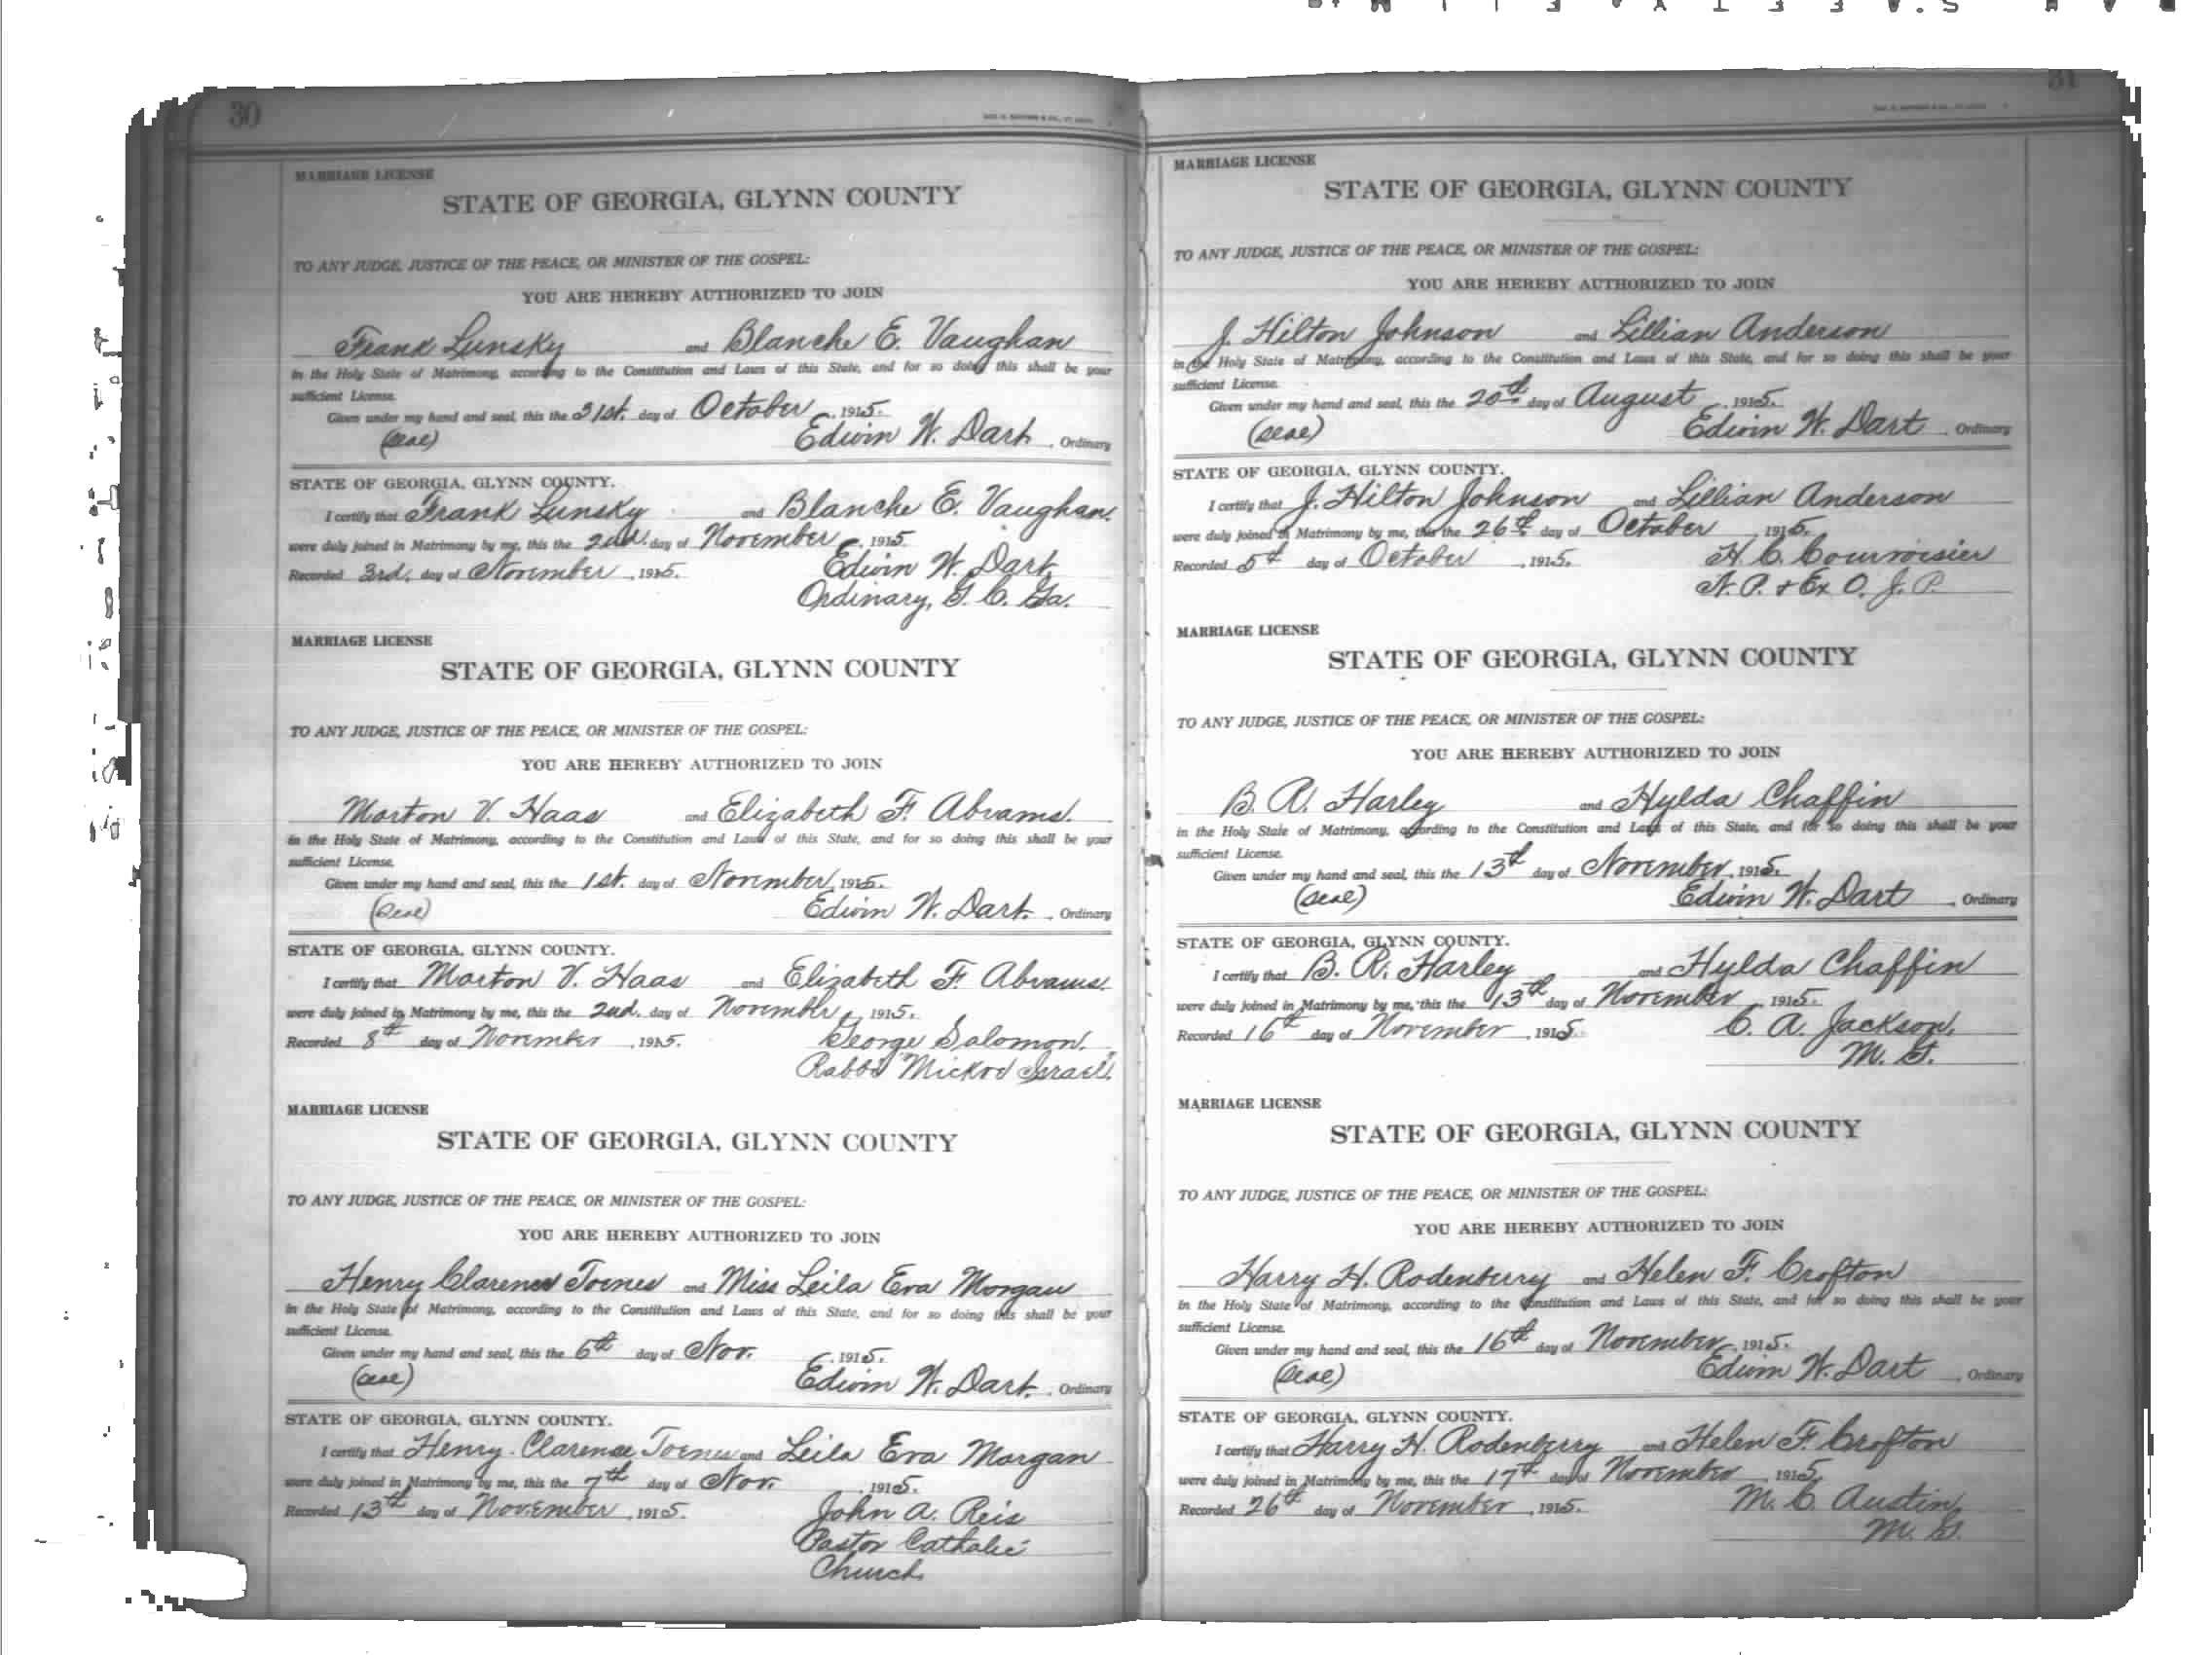 30
MARRIAGE LICENSE
STATE OF GEORGIA, GLYNN COUNTY
TO ANY JUDGE, JUSTICE OF THE PEACE, OR MINISTER OF THE GOSPEL:
YOU ARE HEREBY AUTHORIZED TO JOIN
Frank Lunsky and Blanche E. Vaughan
in the Holy State of Matrimony, according to the Constitution and Laws of this State, and for so doing this shall be your
sufficient License.
Given under my hand and seal, this the 31st. day of October, 1915.
(seal) Edwin W. Dart, Ordinary
STATE OF GEORGIA, GLYNN COUNTY.
I certify that Frank Lunsky and Blanche E. Vaughan.
were duly joined in Matrimony by me, this the 2nd. day of November, 1915.
Recorded 3rd. day of November, 1915. Edwin W. Dart,
Ordinary, G. C. Ga.
MARRIAGE LICENSE
STATE OF GEORGIA, GLYNN COUNTY
TO ANY JUDGE, JUSTICE OF THE PEACE, OR MINISTER OF THE GOSPEL:
YOU ARE HEREBY AUTHORIZED TO JOIN
Morton V. Haas and Elizabeth F. Abrams.
in the Holy State of Matrimony, according to the Constitution and Laws of this State, and for so doing this shall be your
sufficient License.
Given under my hand and seal, this the 1st. day of November, 1915.
(Seal) Edwin W. Dart, Ordinary
STATE OF GEORGIA, GLYNN COUNTY.
I certify that Morton V. Haas and Elizabeth F. Abrams.
were duly joined in Matrimony by me, this the 2nd. day of November, 1915.
Recorded 8th day of November, 1915. George Solomon.
Rabbi "Mickve Israel".
MARRIAGE LICENSE
STATE OF GEORGIA, GLYNN COUNTY
TO ANY JUDGE, JUSTICE OF THE PEACE, OR MINISTER OF THE GOSPEL:
YOU ARE HEREBY AUTHORIZED TO JOIN
Henry Clarence and Miss Leila Eva Morgan
in the Holy State of Matrimony, according to the Constitution and Laws of this State, and for so doing this shall be your
sufficient License.
Given under my hand and seal, this the 6th day of Nov. 1915.
(seal) Edwin W. Dart, Ordinary
STATE OF GEORGIA, GLYNN COUNTY.
I certify that Henry Clarence and Leila Eva Morgan
were duly joined in Matrimony by me, this the 7th day of Nov. 1915.
Recorded 13th day of November, 1915. John A. Reis
Pastor Catholic
Church.
31
MARRIAGE LICENSE
STATE OF GEORGIA, GLYNN COUNTY
TO ANY JUDGE, JUSTICE OF THE PEACE, OR MINISTER OF THE GOSPEL:
YOU ARE HEREBY AUTHORIZED TO JOIN
J. Hilton Johnson and Lillian Anderson
in the Holy State of Matrimony, according to the Constitution and Laws of this State, and for so doing this shall be your
sufficient License.
Given under my hand and seal, this the 20th day of August, 1915.
(seal) Edwin W. Dart, Ordinary
STATE OF GEORGIA, GLYNN COUNTY.
I certify that J. Hilton Johnson and Lillian Anderson
were duly joined in Matrimony by me, this the 26th day of October, 1915.
Recorded 5th day of October, 1915. H. C. Courvoisier
N. P. & Ex O. J. P.
MARRIAGE LICENSE
STATE OF GEORGIA, GLYNN COUNTY
TO ANY JUDGE, JUSTICE OF THE PEACE, OR MINISTER OF THE GOSPEL:
YOU ARE HEREBY AUTHORIZED TO JOIN
B. R. Harley and Hylda Chaffin
in the Holy State of Matrimony, according to the Constitution and Laws of this State, and for so doing this shall be your
sufficient License.
Given under my hand and seal, this the 13th day of November, 1915.
(seal) Edwin W. Dart, Ordinary
STATE OF GEORGIA, GLYNN COUNTY.
I certify that B. R. Harley and Hylda Chaffin
were duly joined in Matrimony by me, this the 13th day of November, 1915.
Recorded 16th day of November, 1915. C. A. Jackson,
M. G.
MARRIAGE LICENSE
STATE OF GEORGIA, GLYNN COUNTY
TO ANY JUDGE, JUSTICE OF THE PEACE, OR MINISTER OF THE GOSPEL:
YOU ARE HEREBY AUTHORIZED TO JOIN
Harry H. Rodenberry and Helen F. Crofton
in the Holy State of Matrimony, according to the Constitution and Laws of this State, and for so doing this shall be your
sufficient License.
Given under my hand and seal, this the 16th day of November, 1915.
(Seal) Edwin W. Dart, Ordinary
STATE OF GEORGIA, GLYNN COUNTY.
I certify that Harry H. Rodenberry and Helen F. Crofton
were duly joined in Matrimony by me, this the 17th day of November, 1915.
Recorded 26th day of November, 1915. M. C. Austin,
M. G.